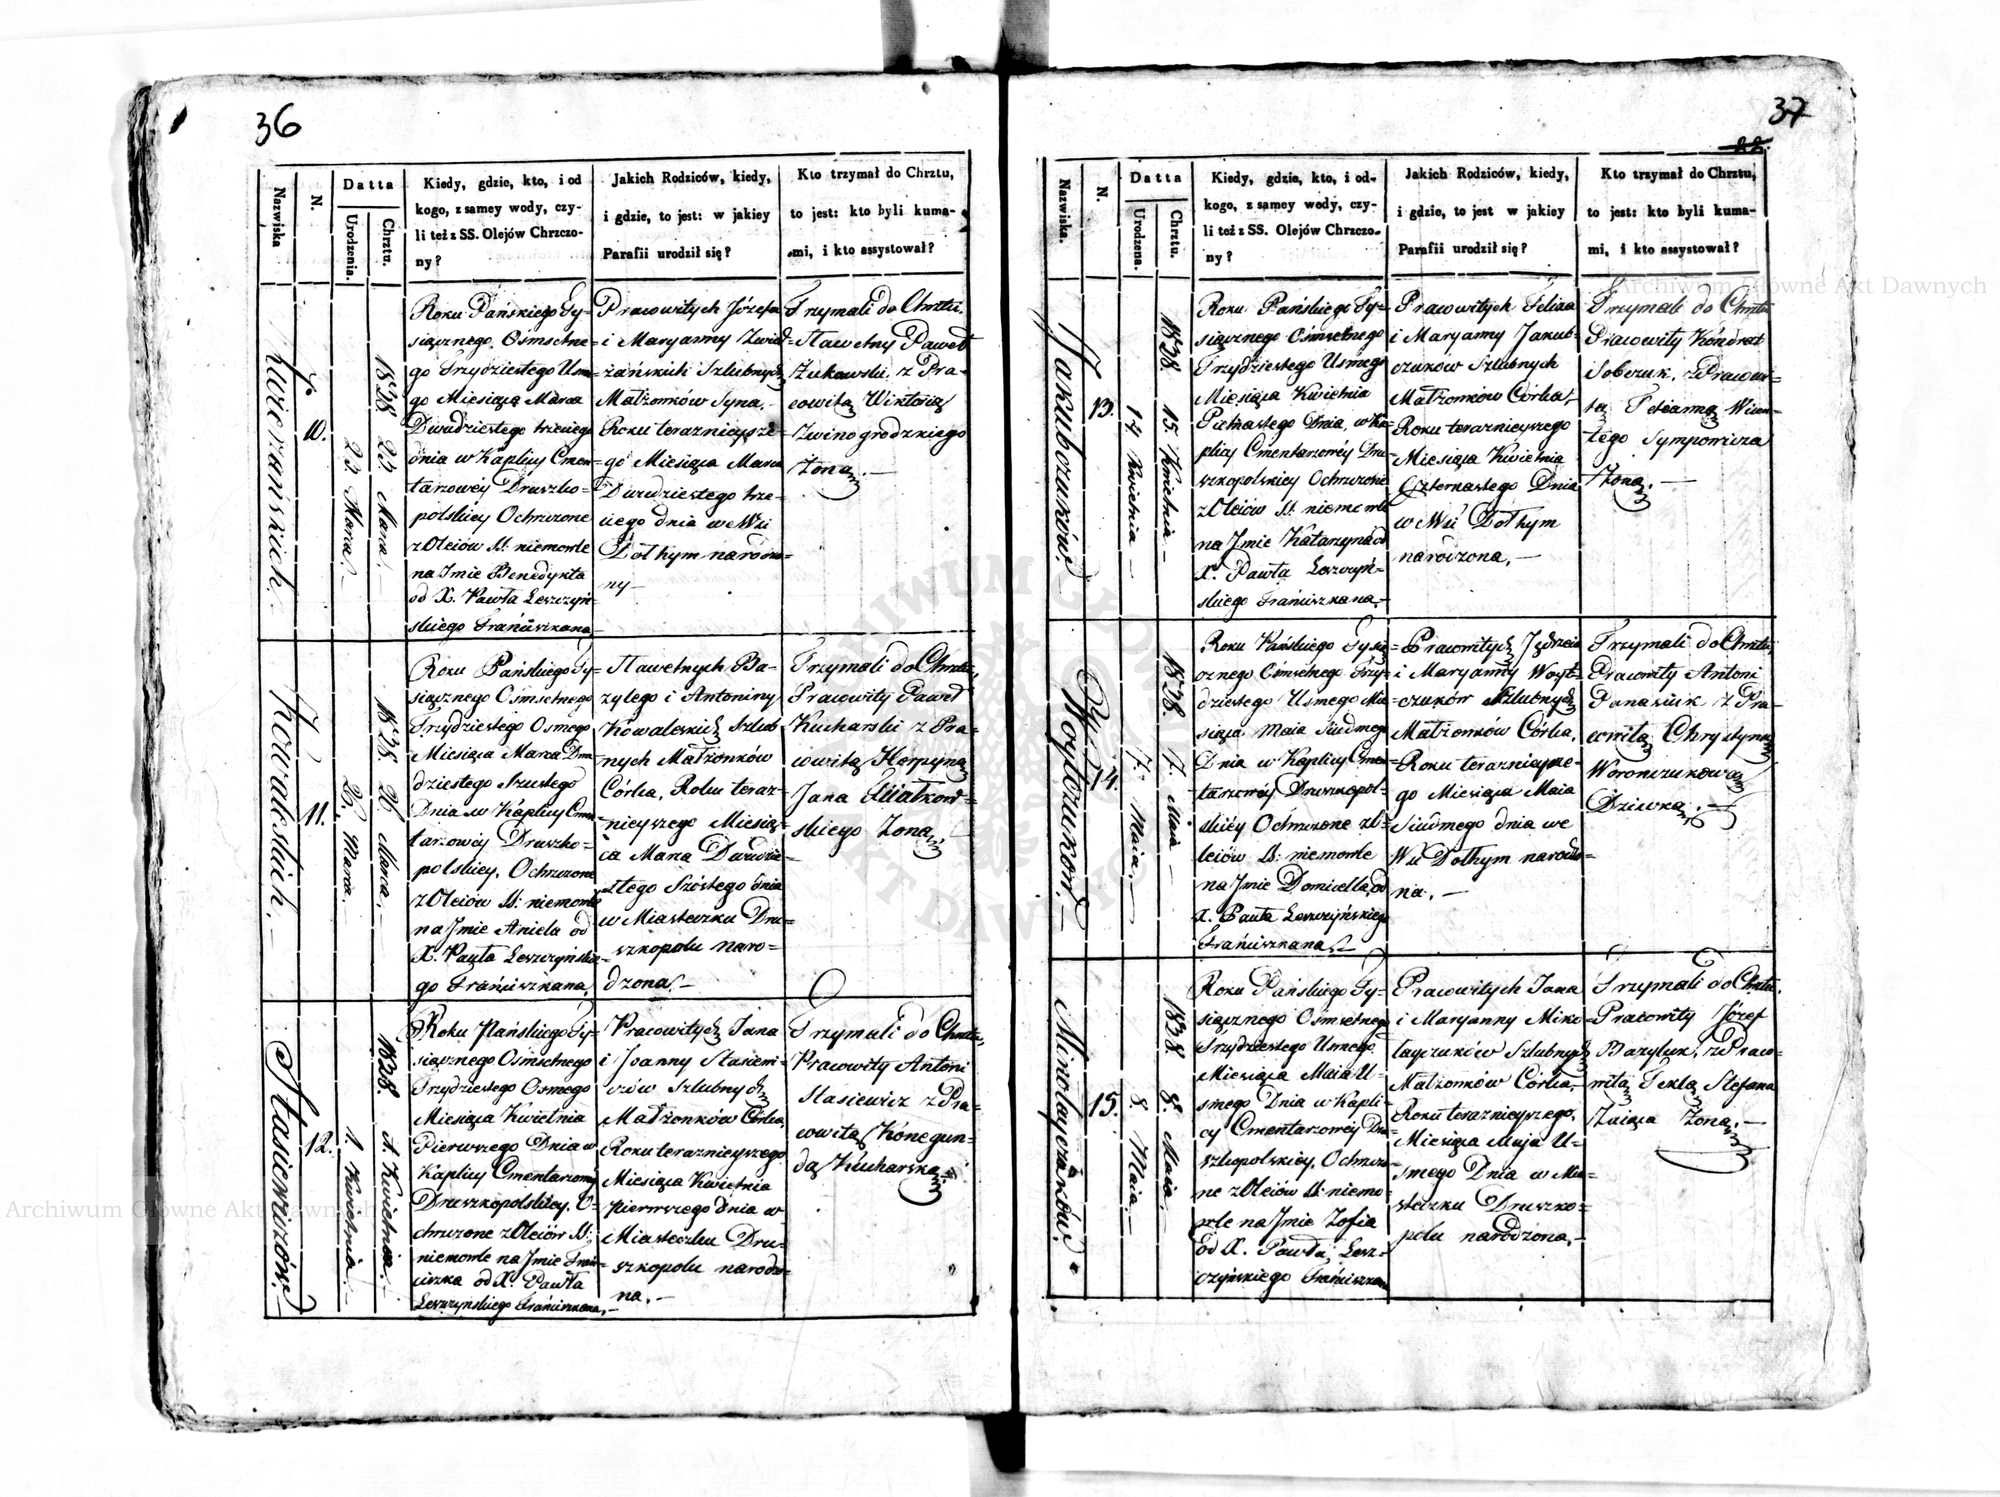 36
Nazwiska
N.
Datta
Urodzenia.
Chrztu.
Kiedy, gdzie, kto, i od
kogo, z samey wody, czy-
li też z SS. Olejów Chrzczo-
ny?
Jakich Rodziców, kiedy,
i gdzie, to jest: w jakiey
Parafii urodził się?
Kto trzymał do Chrztu,
to jest: kto byli kuma-
mi, i kto assystował?
10.
1838 23 Marca.
23 Marca.
Roku Pańskiego Ty-
siącznego Ośmsetne-
go Trzydziestego Usme-
go Miesiąca Marca
Dwudziestego trzeciego
dnia w Kaplicy Cmen-
tarzowéy Druszko-
polskiey Ochrzczone
z Oleiów SS: niemowle
na Jmie Benedykta
od X. Pawła Leszczyń-
skiego Franciszkana
Pracowitych Józefa
i Maryanny
Szlubnych
Małżonków Syna,
Roku teraznieysze-
go Miesiąca Marca
Dwudziestego trze-
ciego dnia we Wsi
Dołhym narodzo-
ny —
Trzymali do Chrztu.
Sławetny Paweł
Żukowski z Pra-
cowitą Wiktorią
Zwinogrodzkiego
Żoną. —
Kowalskich. —
11.
1838 26 Marca. —
26. Marca. —
Roku Pańskiego Ty-
siącznego Ośmsetnego
Trzydziestego Osmego
Miesiąca Marca Dwu-
dziestego Szustego
Dnia w Kaplicy Cmen-
tarzowey Druszko-
polskiey, Ochrzczone
z Oleiów SS: niemowle
na Jmie Aniela od
X. Pawła Leszczyńskie-
go Franciszkana,
Sławetnych Ba-
zylego i Antoniny
Kowalskich Szlub-
nych Małżonków
Córka, Roku teraz-
nieyszego Miesią-
ca Marca Dwudzie-
stego Szóstego dnia
w Miasteczku Dru-
szkopolu naro-
dzona. —
Trzymali do Chrztu,
Pracowity Paweł
Kucharski z Pra-
cowitą Horpyną
Jana Kwiatkow-
skiego Żoną
Stasiewiczów. —
12.
1838. 1. Kwietnia. —
1. Kwietnia. —
Roku Pańskiego Ty-
siącznego Ośmsetnego
Trzydziestego Osmego
Miesiąca Kwietnia
Pierwszego Dnia w
Kaplicy Cmentarzowey
Druszkopolskiey, O-
chrzczone z Oleiów SS:
niemowle na Jmie Fran-
ciszka od X. Pawła
Leszczyńskiego Franciszkana, —
Pracowitych Jana
i Joanny Stasiewi-
czów Szlubnych
Małżonków Córka
Roku teraznieyszego
Miesiąca Kwietnia
pierwszego dnia w
Miasteczku Dru-
szkopolu narodzo-
na. —
Trzymali do Chrztu,
Pracowity Antoni
Stasiewicz z Pra-
cowitą Kónegun-
dą Kucharską
37
Nazwiska.
N.
Datta
Urodzena.
Chrztu.
Kiedy, gdzie, kto, i od-
kogo, z samey wody, czy-
li też z SS. Olejów Chrzczo-
ny?
Jakich Rodziców, kiedy,
i gdzie, to jest w jakiey
Parafii urodził się?
Kto trzymał do Chrztu,
to jest: kto byli kuma-
mi, i kto assystował?
Jakubczuków.
13.
1838 15. Kwietnia —
14 Kwietnia —
Roku Pańskiego Ty-
siącznego Ośmsetnego
Trzydziestego Usmego
Miesiąca Kwietnia
Pietnastego Dnia, w Ka-
plicy Cmentarzowéy Dru-
szkopolskiey Ochrzczone
z Oleiów SS. niemowle
na Jmie Katarzyna od
X. Pawła Leszczyń-
skiego Franciszkana. —
Pracowitych Felixa
i Maryanny Jakub-
czuków Szlubnych
Małżonków Córka,
Roku teraznieyszego
Miesiąca Kwietnia
Czternastego Dnia
w Wsi Dołhym
narodzona, —
Trzymali do Chrztu
Pracowity Kóndrat
Sobczuk, z Pracowi-
tą Win-
tego Symponicza
Żoną. —
Woytczuków. —
14.
1838. 7. Maia —
7. Maia. —
Roku Pańskiego Tysią-
cznego Ośmsetnego Trzy-
dziestego Usmego Mie-
siąca Maia Siudmego
Dnia w Kaplicy Cmen-
tarzowéy Druszkopol-
skiéy Ochrzczone z O-
leiów SS: niemowle
na Jmie Domicella, od
X. Pawła Leszczyńskiego
Franciszkana,
Pracowitych Jędrzeia
i Maryanny Woyt-
czuków Szlubnych
Małżonków Córka,
Roku teraznieysze-
go Miesiąca Maia
Siudmego dnia we
Wsi Dołhym narodzo-
na. —
Trzymali do Chrztu,
Pracowity Antoni
Panasiuk z Pra-
cowitą Chrystyną
Woronczukową
Dziewką. —
Mikołayczuków.
15.
1838. 8. Maia. —
8. Maia. —
Roku Pańskiego Ty-
siącznego Ośmsetnego
Trzydziestego Usmego
Miesiąca Maia U-
smego Dnia w Kapli-
cy Cmentarzowéy Dru-
szkopolskiey, Ochrzczo-
ne z Oleiów SS: niemo-
wle na Jmie Zofia
od X. Pawła Lesz-
czyńskiego Franciszkana
Pracowitych Jana
i Maryanny Miko-
łayczuków Szlubnych
Małżonków Córka,
Roku teraznieyszego,
Miesiąca Maja U-
smego Dnia w Mia-
steczku Druszko-
polu narodzona. —
Trzymali do Chrztu,
Pracowity Józef
Bazyluk, z Praco-
witą Teklą Stefana
Zaiąca Żoną. —
Archiwum Główne Akt Dawnych
Archiwum Główne Akt Dawnych